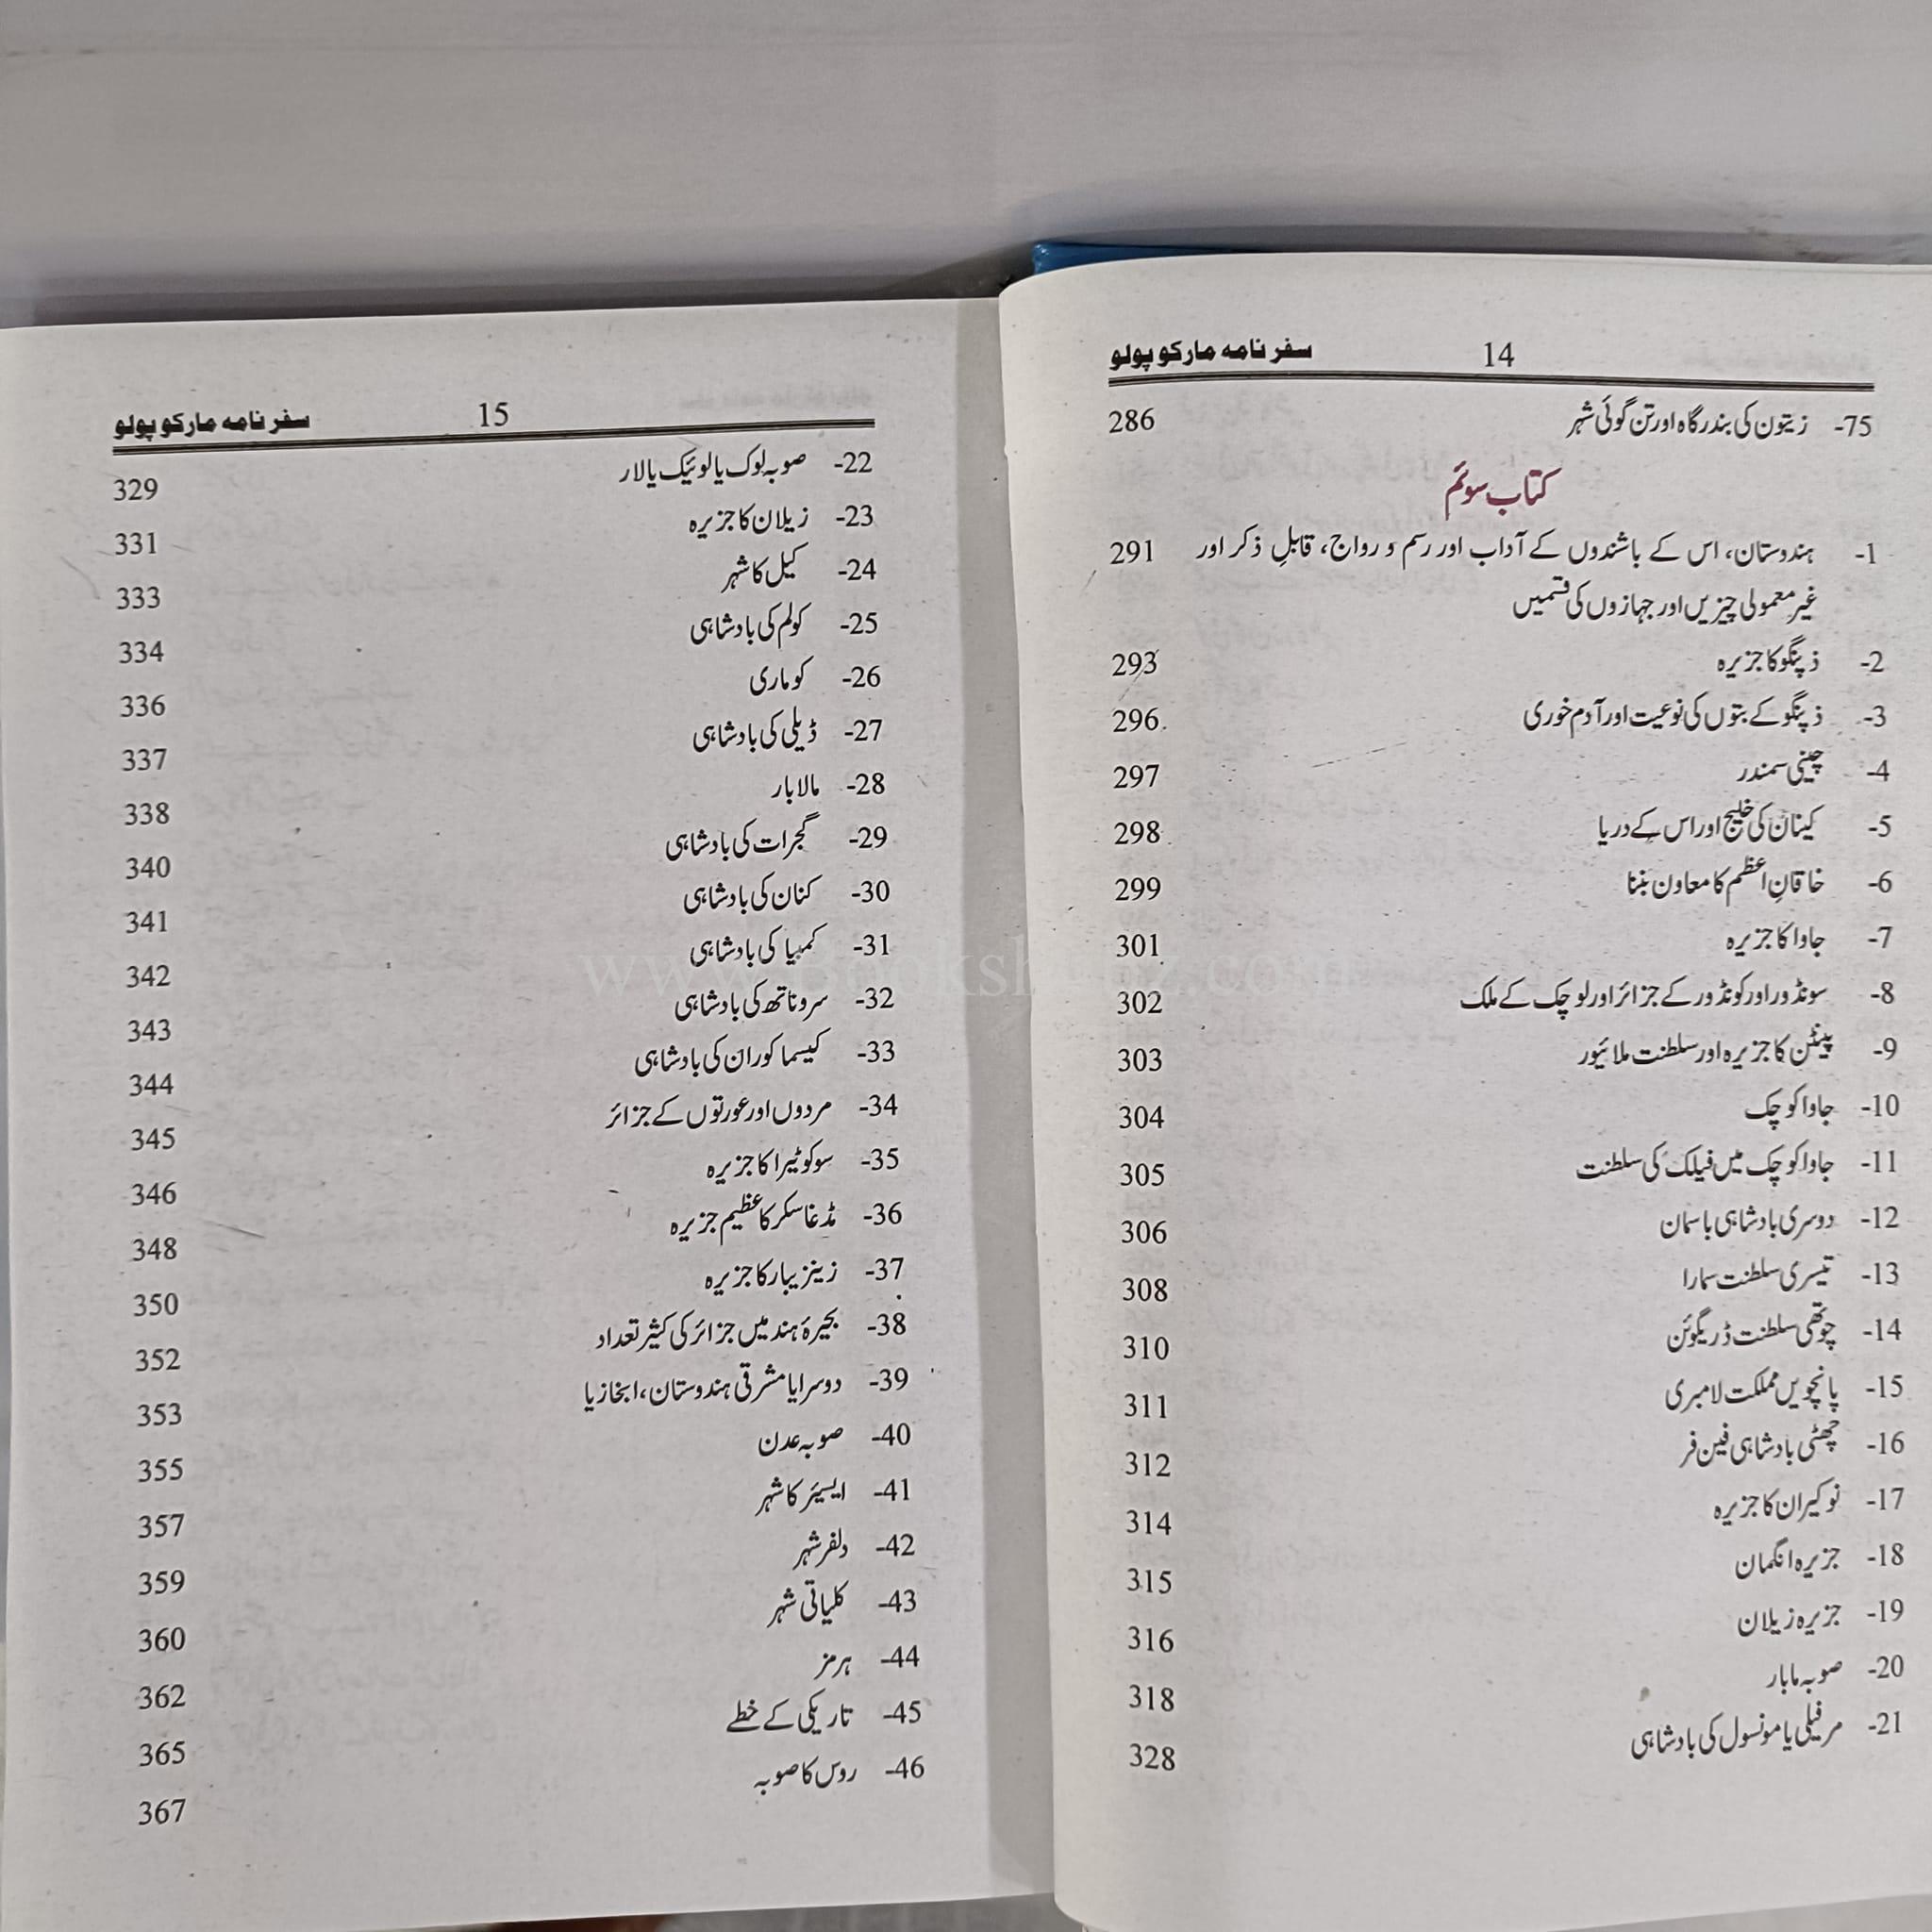 سفر نامہ مارکو پولو 14
75- زیتون کی بندرگاہ اور تن گوئی شہر 286
کتاب سوئم
1- ہندوستان، اس کے باشندوں کے آداب اور رسم و رواج، قابلِ ذکر اور 291
غیر معمولی چیزیں اور جہازوں کی قسمیں
2- ذپنگو کا جزیرہ 293
3- ذپنگو کے بتوں کی نوعیت اور آدم خوری 296
4- چینی سمندر 297
5- کینان کی خلیج اور اس کے دریا 298
6- خاقانِ اعظم کا معاون بننا 299
7- جاوا کا جزیرہ 301
8- سونڈور اور کونڈور کے جزائر اور لوچک کے ملک 302
9- پینٹن کا جزیرہ اور سلطنت ملائیور 303
10- جاوا کوچک 304
11- جاوا کوچک میں فیلک کی سلطنت 305
12- دوسری بادشاہی باسمان 306
13- تیسری سلطنت سمارا 308
14- چوتھی سلطنت ڈریگوئن 310
15- پانچویں مملکت لامبری 311
16- چھٹی بادشاہی فین فر 312
17- نوکیران کا جزیرہ 314
18- جزیرہ انگمان 315
19- جزیرہ زیلان 316
20- صوبہ مابار 318
21- مرفیلی یا مونسول کی بادشاہی 328
سفر نامہ مارکو پولو 15
22- صوبہ لوک یا لوئیک یا لار 329
23- زیلان کا جزیرہ 331
24- کیل کا شہر 333
25- کولم کی بادشاہی 334
26- کوماری 336
27- ڈیلی کی بادشاہی 337
28- مالابار 338
29- گجرات کی بادشاہی 340
30- کنان کی بادشاہی 341
31- کمبیا کی بادشاہی 342
32- سروناتھ کی بادشاہی 343
33- کیسماکوران کی بادشاہی 344
34- مردوں اور عورتوں کے جزائر 345
35- سوکوٹیرا کا جزیرہ 346
36- مڈغاسکر کا عظیم جزیرہ 348
37- زینزیبار کا جزیرہ 350
38- بحیرۂ ہند میں جزائر کی کثیر تعداد 352
39- دوسرا یا مشرقی ہندوستان، ابخازیا 353
40- صوبہ عدن 355
41- ایسیئر کا شہر 357
42- دلفر شہر 359
43- کلیاتی شہر 360
44- ہرمز 362
45- تاریکی کے خطے 365
46- روس کا صوبہ 367